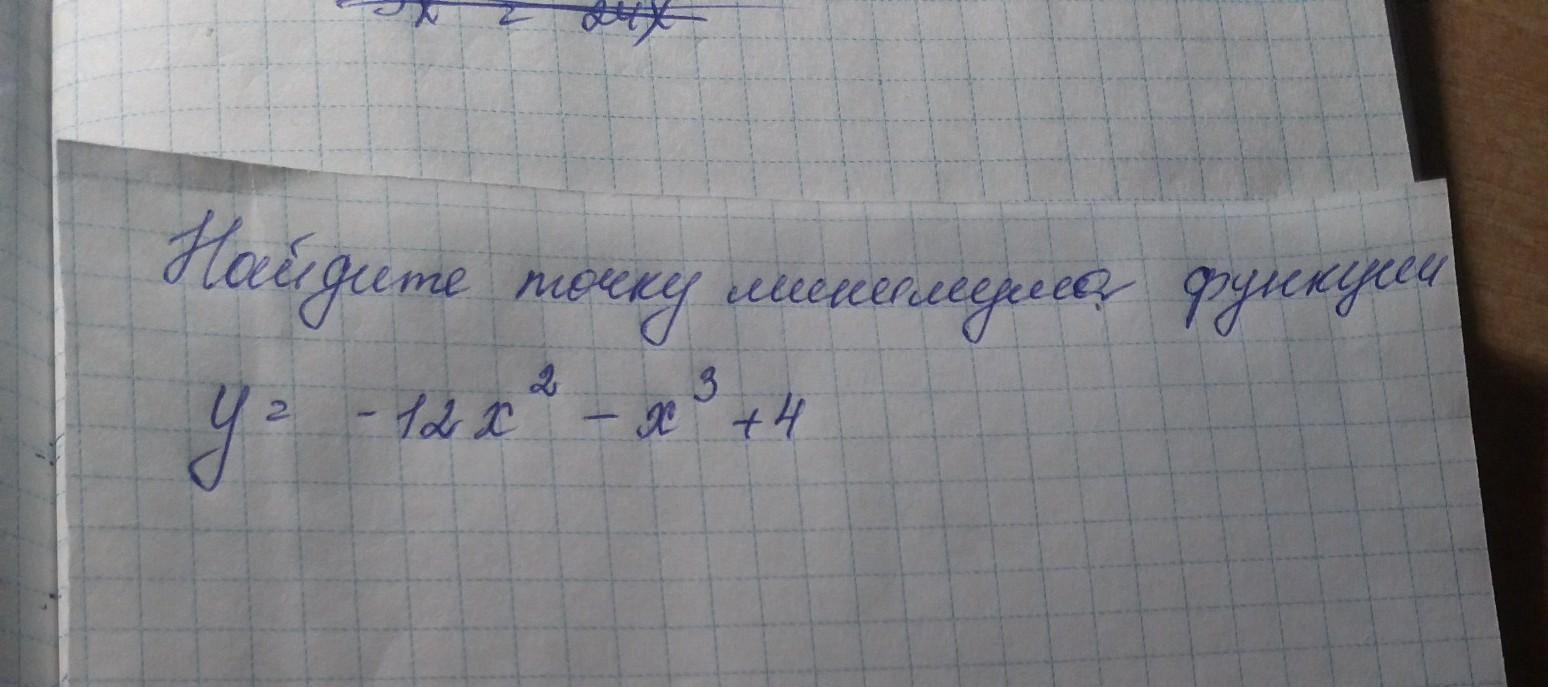 3x = 24x
Найдите точку минимума функции
y = -12x² - x³ + 4